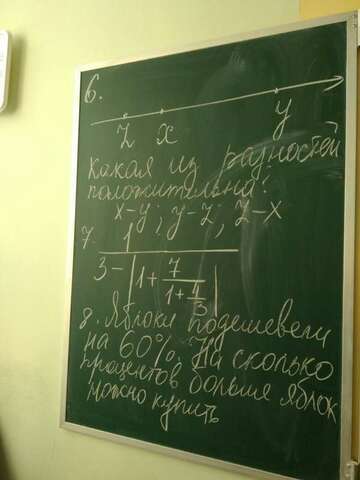 6.
z x y
Какая из разностей
положительна?
x-y; y-z; z-x
7. 1
3- |1+ 7
1+ 4
3|
8. Яблоки подешевели
на 60%. На сколько
процентов больше яблок
можно купить